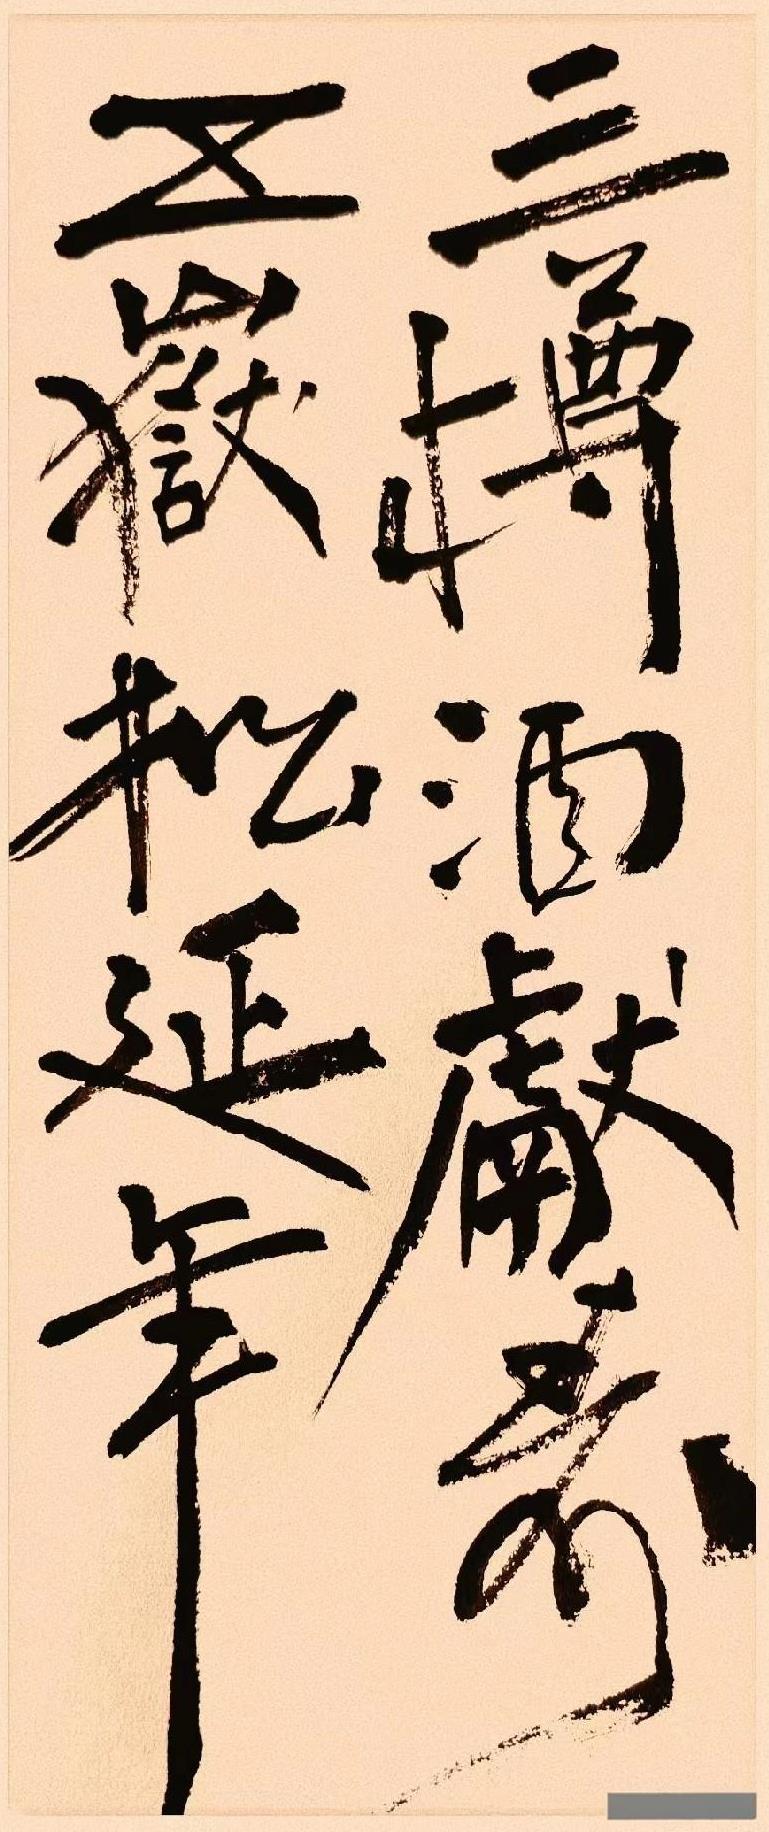 三罇酒獻壽
五嶽松延年